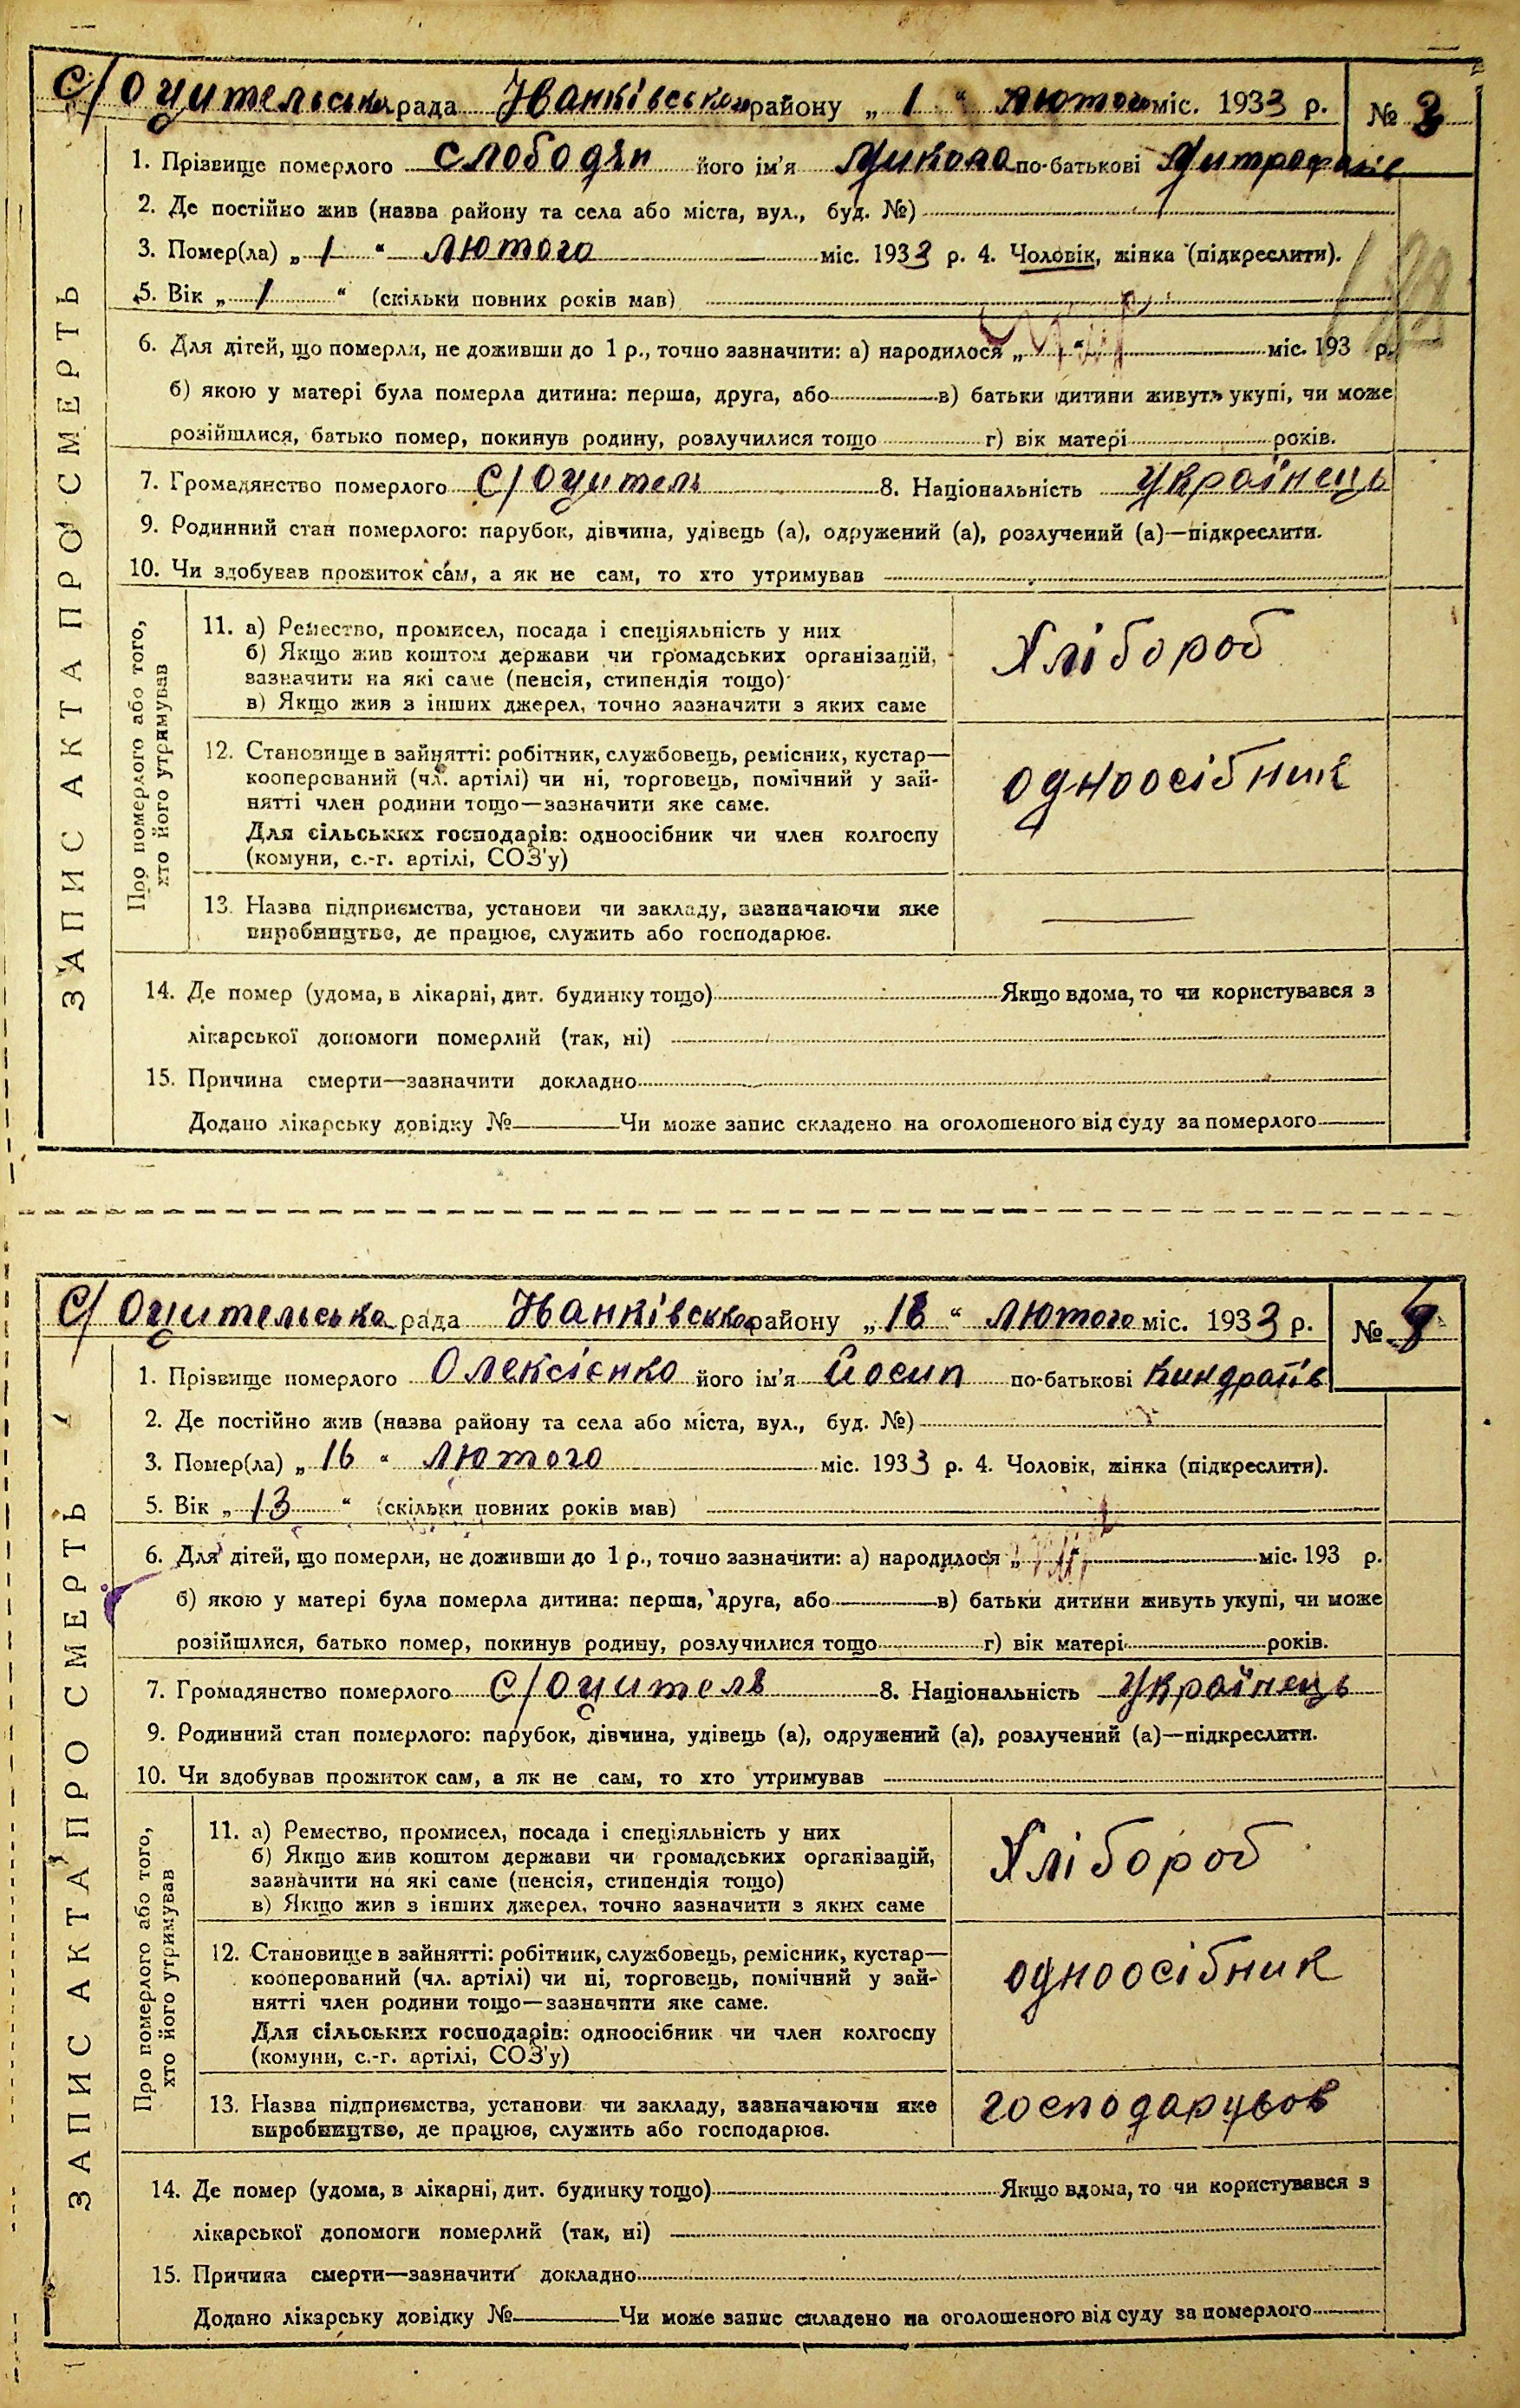 С/Оцительська рада Іванківського району „1“ лютого міс. 1933 р. № 3
1. Прізвище померлого Слободян його ім'я Микола по-батькові Митрофанів
2. Де постійно жив (назва району та села або міста, вул., буд. №)
3. Помер(ла) „1“ лютого міс. 1933 р. 4. Чоловік, жінка (підкреслити).
5. Вік „1“ (скільки повних років мав)
6. Для дітей, що померли, не доживши до 1 р., точно зазначити: а) народилося „ “ міс. 193 р.
б) якою у матері була померла дитина: перша, друга, або в) батьки дитини живуть укупі, чи може
розійшлися, батько помер, покинув родину, розлучилися тощо г) вік матері років.
7. Громадянство померлого с/Оцитель 8. Національність Українець
9. Родинний стан померлого: парубок, дівчина, удівець (а), одружений (а), розлучений (а)—підкреслити.
10. Чи здобував прожиток сам, а як не сам, то хто утримував
ЗАПИС АКТА ПРО СМЕРТЬ
Про померлого або того,
хто його утримував
11. а) Ремество, промисел, посада і спеціяльність у них
б) Якщо жив коштом держави чи громадських організацій,
зазначити на які саме (пенсія, стипендія тощо)
в) Якщо жив з інших джерел, точно зазначити з яких саме
Хлібороб
12. Становище в зайнятті: робітник, службовець, ремісник, кустар—
кооперований (чл. артілі) чи ні, торговець, помічний у зай-
нятті член родини тощо—зазначити яке саме.
Для сільських господарів: одноосібник чи член колгоспу
(комуни, с.-г. артілі, СОЗ'у)
одноосібник
13. Назва підприємства, установи чи закладу, зазначаючи яке
виробництво, де працює, служить або господарює.
14. Де помер (удома, в лікарні, дит. будинку тощо) Якщо вдома, то чи користувався з
лікарської допомоги померлий (так, ні)
15. Причина смерти—зазначити докладно
Додано лікарську довідку № Чи може запис складено на оголошеного від суду за померлого
С/Оцительська рада Іванківського району „16“ лютого міс. 1933 р. №
1. Прізвище померлого Олексієнко його ім'я Йосип по-батькові Киндратів
2. Де постійно жив (назва району та села або міста, вул., буд. №)
3. Помер(ла) „16“ лютого міс. 1933 р. 4. Чоловік, жінка (підкреслити).
5. Вік „13“ (скільки повних років мав)
6. Для дітей, що померли, не доживши до 1 р., точно зазначити: а) народилося „ “ міс. 193 р.
б) якою у матері була померла дитина: перша, друга, або в) батьки дитини живуть укупі, чи може
розійшлися, батько помер, покинув родину, розлучилися тощо г) вік матері років.
7. Громадянство померлого с/Оцитель 8. Національність Українець
9. Родинний стан померлого: парубок, дівчина, удівець (а), одружений (а), розлучений (а)—підкреслити.
10. Чи здобував прожиток сам, а як не сам, то хто утримував
ЗАПИС АКТА ПРО СМЕРТЬ
Про померлого або того,
хто його утримував
11. а) Ремество, промисел, посада і спеціяльність у них
б) Якщо жив коштом держави чи громадських організацій,
зазначити на які саме (пенсія, стипендія тощо)
в) Якщо жив з інших джерел, точно зазначити з яких саме
Хлібороб
12. Становище в зайнятті: робітник, службовець, ремісник, кустар—
кооперований (чл. артілі) чи ні, торговець, помічний у зай-
нятті член родини тощо—зазначити яке саме.
Для сільських господарів: одноосібник чи член колгоспу
(комуни, с.-г. артілі, СОЗ'у)
одноосібник
13. Назва підприємства, установи чи закладу, зазначаючи яке
виробництво, де працює, служить або господарює.
14. Де помер (удома, в лікарні, дит. будинку тощо) Якщо вдома, то чи користувався з
лікарської допомоги померлий (так, ні)
15. Причина смерти—зазначити докладно
Додано лікарську довідку № Чи може запис складено на оголошеного від суду за померлого